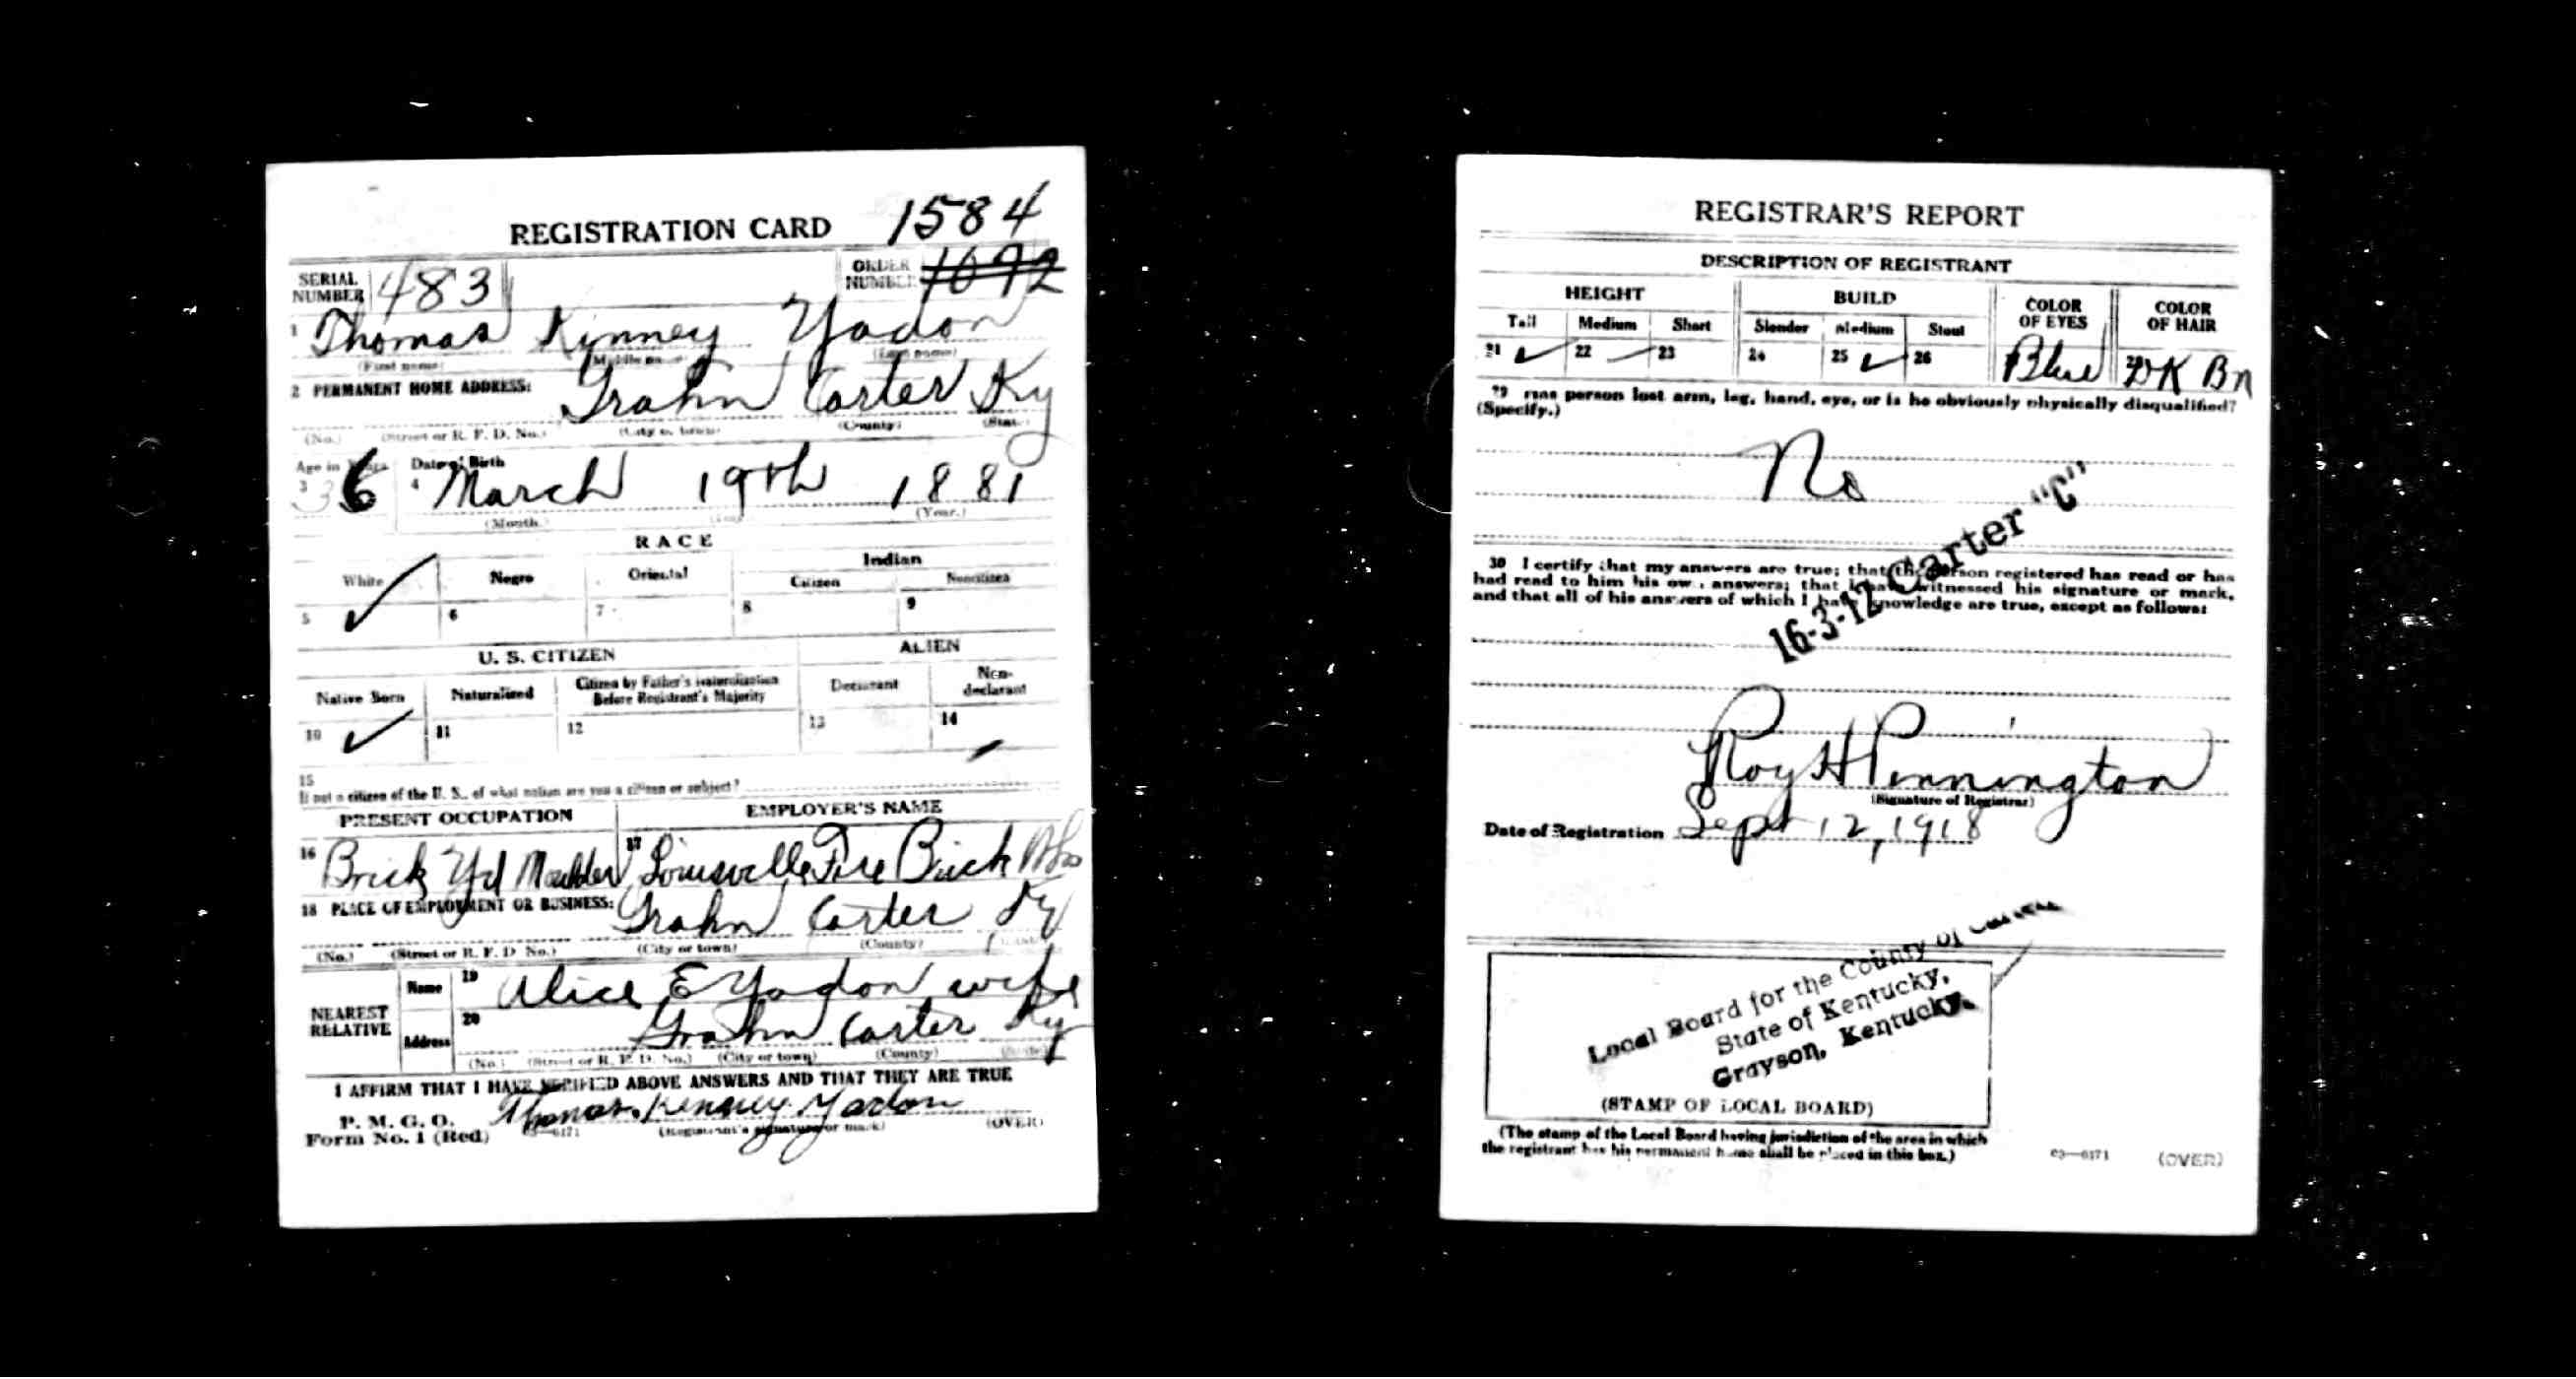 REGISTRATION CARD 1584
SERIAL NUMBER 483 ORDER NUMBER 1092
1 Thomas Kinney Yadon
(First name) (Middle name) (Last name)
2 PERMANENT HOME ADDRESS: Grahn Carter Ky
(No.) (Street or R. F. D. No.) (City or town) (County) (State)
Age in Years Date of Birth
3 36 4 March 19th 1881
(Month.) (Day.) (Year.)
RACE
White Negro Oriental Indian
Citizen Noncitizen
5 ✓ 6 7 8 9
U. S. CITIZEN ALIEN
Native Born Naturalized Citizen by Father's Naturalization Before Registrant's Majority Declarant Non-declarant
10 ✓ 11 12 13 14
15
If not a citizen of the U. S., of what nation are you a citizen or subject?
PRESENT OCCUPATION EMPLOYER'S NAME
16 Brick Yd Moulder 17 Louisville Fire Brick
18 PLACE OF EMPLOYMENT OR BUSINESS: Grahn Carter Ky
(No.) (Street or R. F. D. No.) (City or town) (County) (State)
NEAREST RELATIVE Name 19 Alice E Yadon wife
Address 20 Grahn Carter Ky
(No.) (Street or R. F. D. No.) (City or town) (County) (State)
I AFFIRM THAT I HAVE VERIFIED ABOVE ANSWERS AND THAT THEY ARE TRUE
P. M. G. O.
Form No. 1 (Red) 03—6171 Thomas Kenney Yadon
(Registrant's signature or mark) (OVER)
REGISTRAR'S REPORT
DESCRIPTION OF REGISTRANT
HEIGHT BUILD COLOR OF EYES COLOR OF HAIR
Tall Medium Short Slender Medium Stout
21 ✓ 22 23 24 25 ✓ 26 Blue 28 DK Bn
29 Has person lost arm, leg, hand, eye, or is he obviously physically disqualified?
(Specify.)
No
16-3-12 Carter "C"
30 I certify that my answers are true; that the person registered has read or has
had read to him his own answers; that I have witnessed his signature or mark,
and that all of his answers of which I have knowledge are true, except as follows:
Roy H Pennington
(Signature of Registrar)
Date of Registration Sept 12, 1918
Local Board for the County of Carter
State of Kentucky,
Grayson, Kentucky.
(STAMP OF LOCAL BOARD)
(The stamp of the Local Board having jurisdiction of the area in which
the registrant has his permanent home shall be placed in this box.)
03—6171 (OVER)